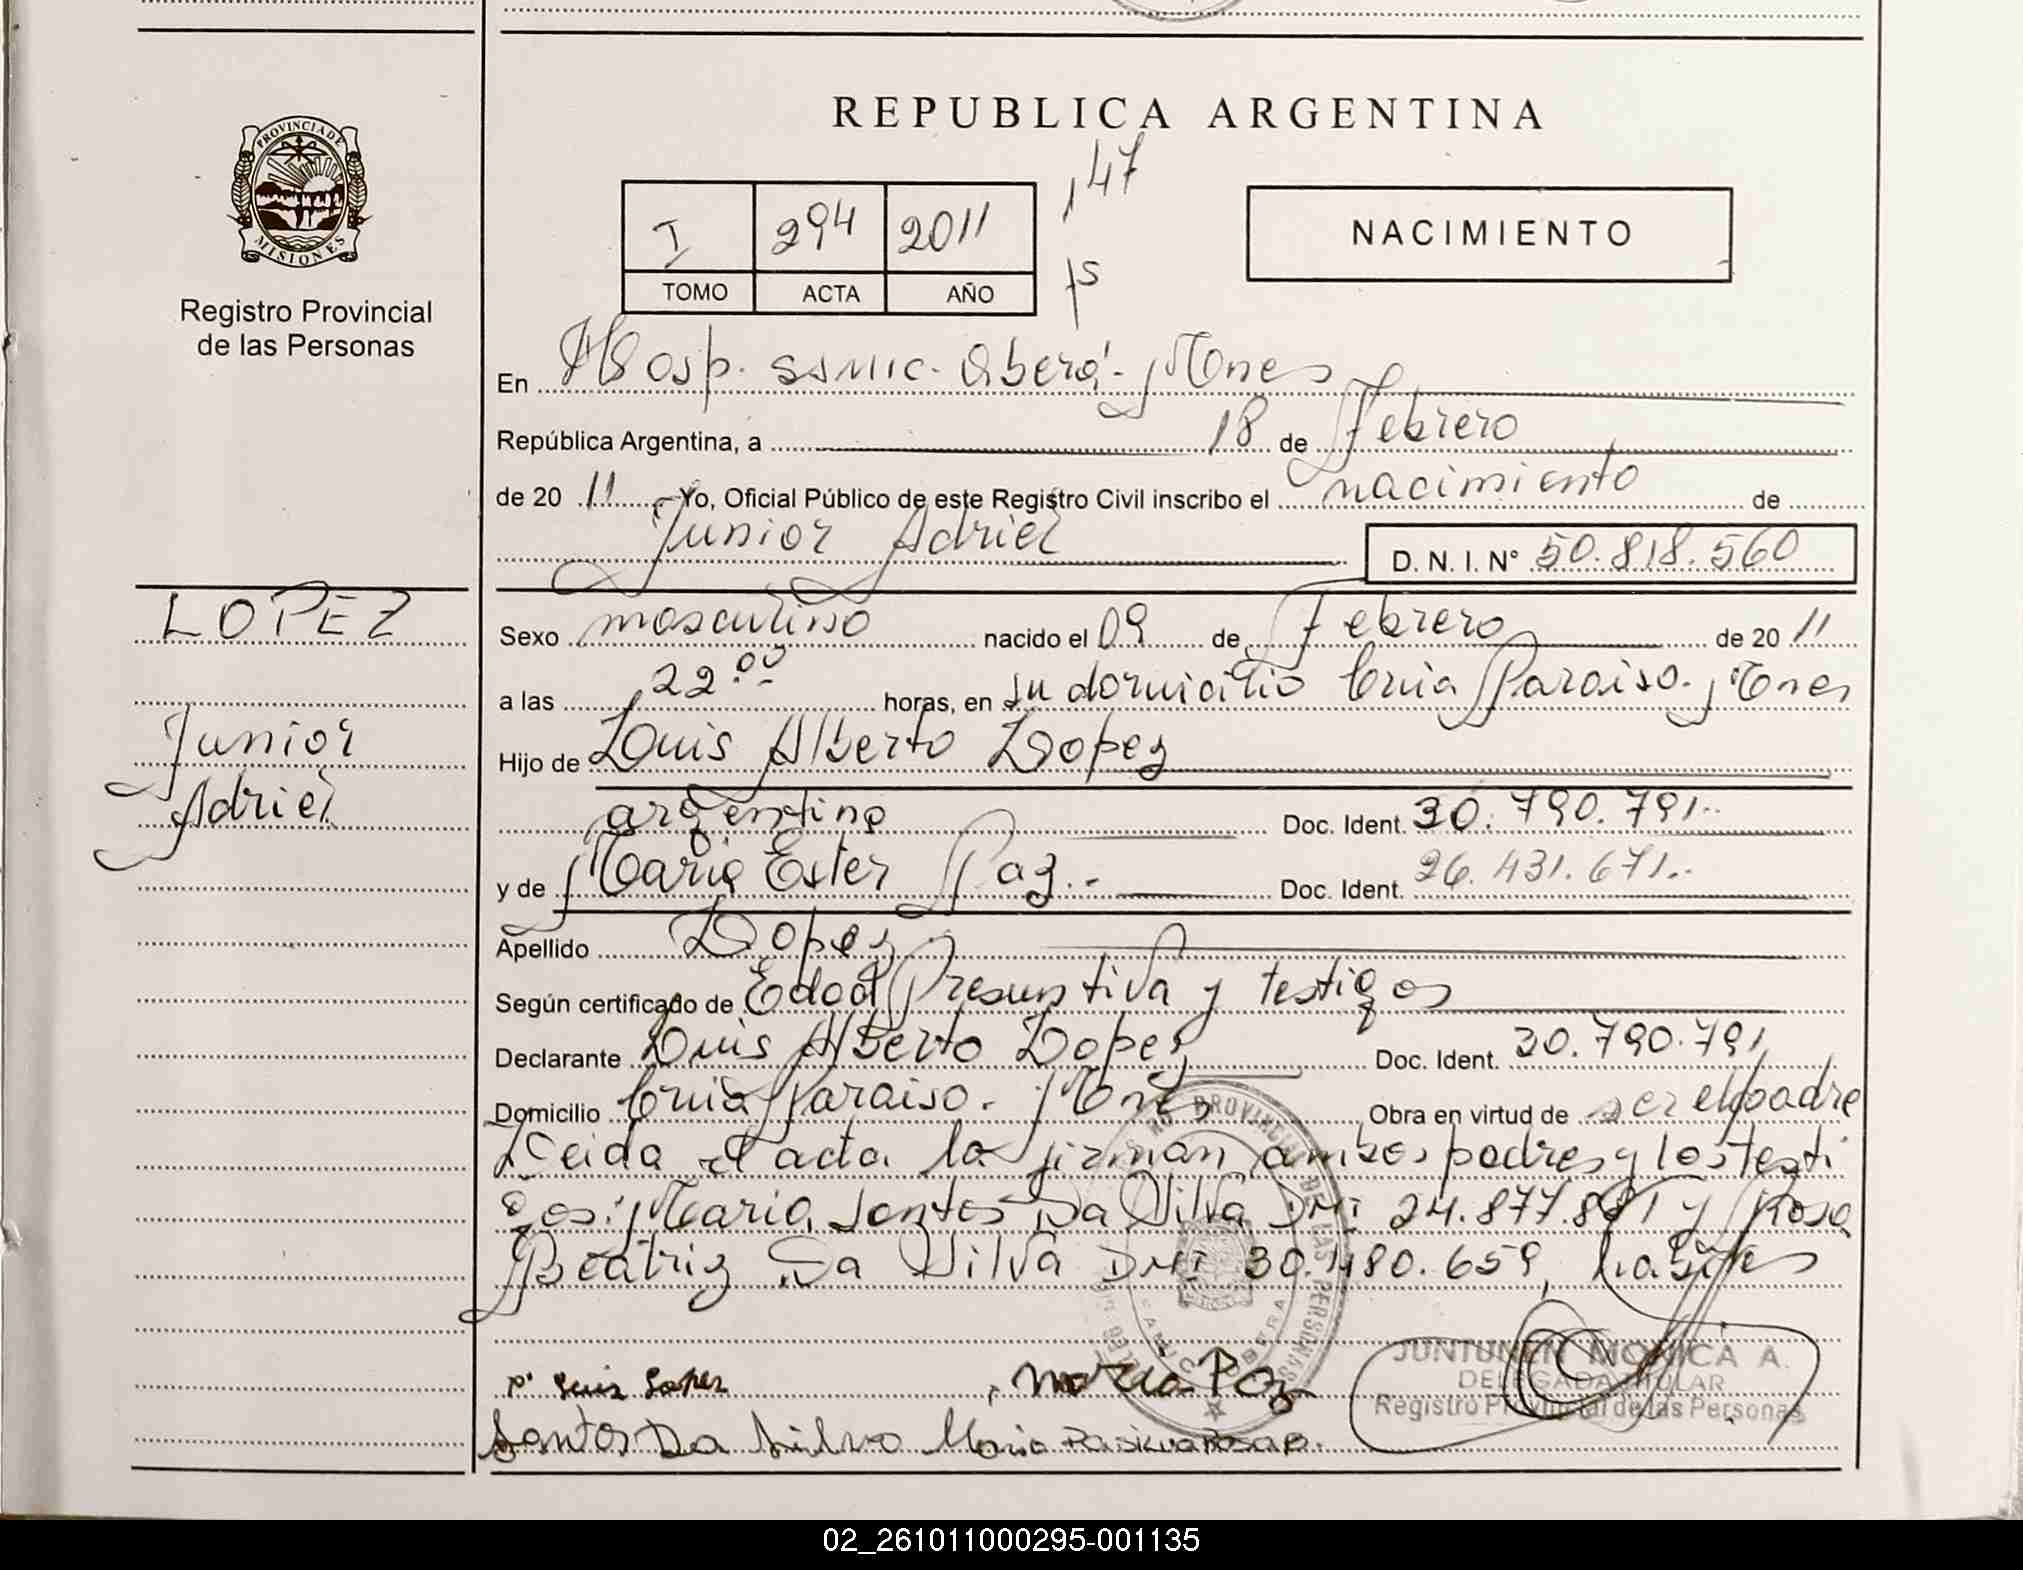 REPUBLICA ARGENTINA
PROVINCIA DE
MISIONES
Registro Provincial
de las Personas
147
I 294 2011
TOMO ACTA AÑO
NACIMIENTO
En Hosp. SAMIC. Oberá - Mnes
República Argentina, a 18 de Febrero
de 20 11 Yo, Oficial Público de este Registro Civil inscribo el nacimiento de
Junior Adriel D. N. I. N° 50.818.560
LOPEZ
Junior
Adriel
Sexo masculino nacido el 09 de Febrero de 20 11
a las 22:00 horas, en su domicilio Cnia Paraiso. Mnes
Hijo de Luis Alberto Lopez
argentino Doc. Ident. 30.790.791..
y de Maria Ester Paz.- Doc. Ident. 26.431.671..
Apellido Lopez
Según certificado de Edad Presuntiva y testigos
Declarante Luis Alberto Lopez Doc. Ident. 30.790.791
Domicilio Cnia Paraiso. Mnes Obra en virtud de ser el padre
Leida el acta la firman ambos padres y los testi
gos: Maria Santos Da Silva DNI 24.877.881 y Rosa
Beatriz Da Silva DNI 30.480.659, hábiles
Luis Lopez Maria Paz
JUNTUNEN MONICA A.
DELEGADA TITULAR
Registro Provincial de las Personas
Santos Da Silva Maria Da Silva Rosa B.
PROVINCIAL DE LAS PERSONAS
OBERA
02_261011000295-001135